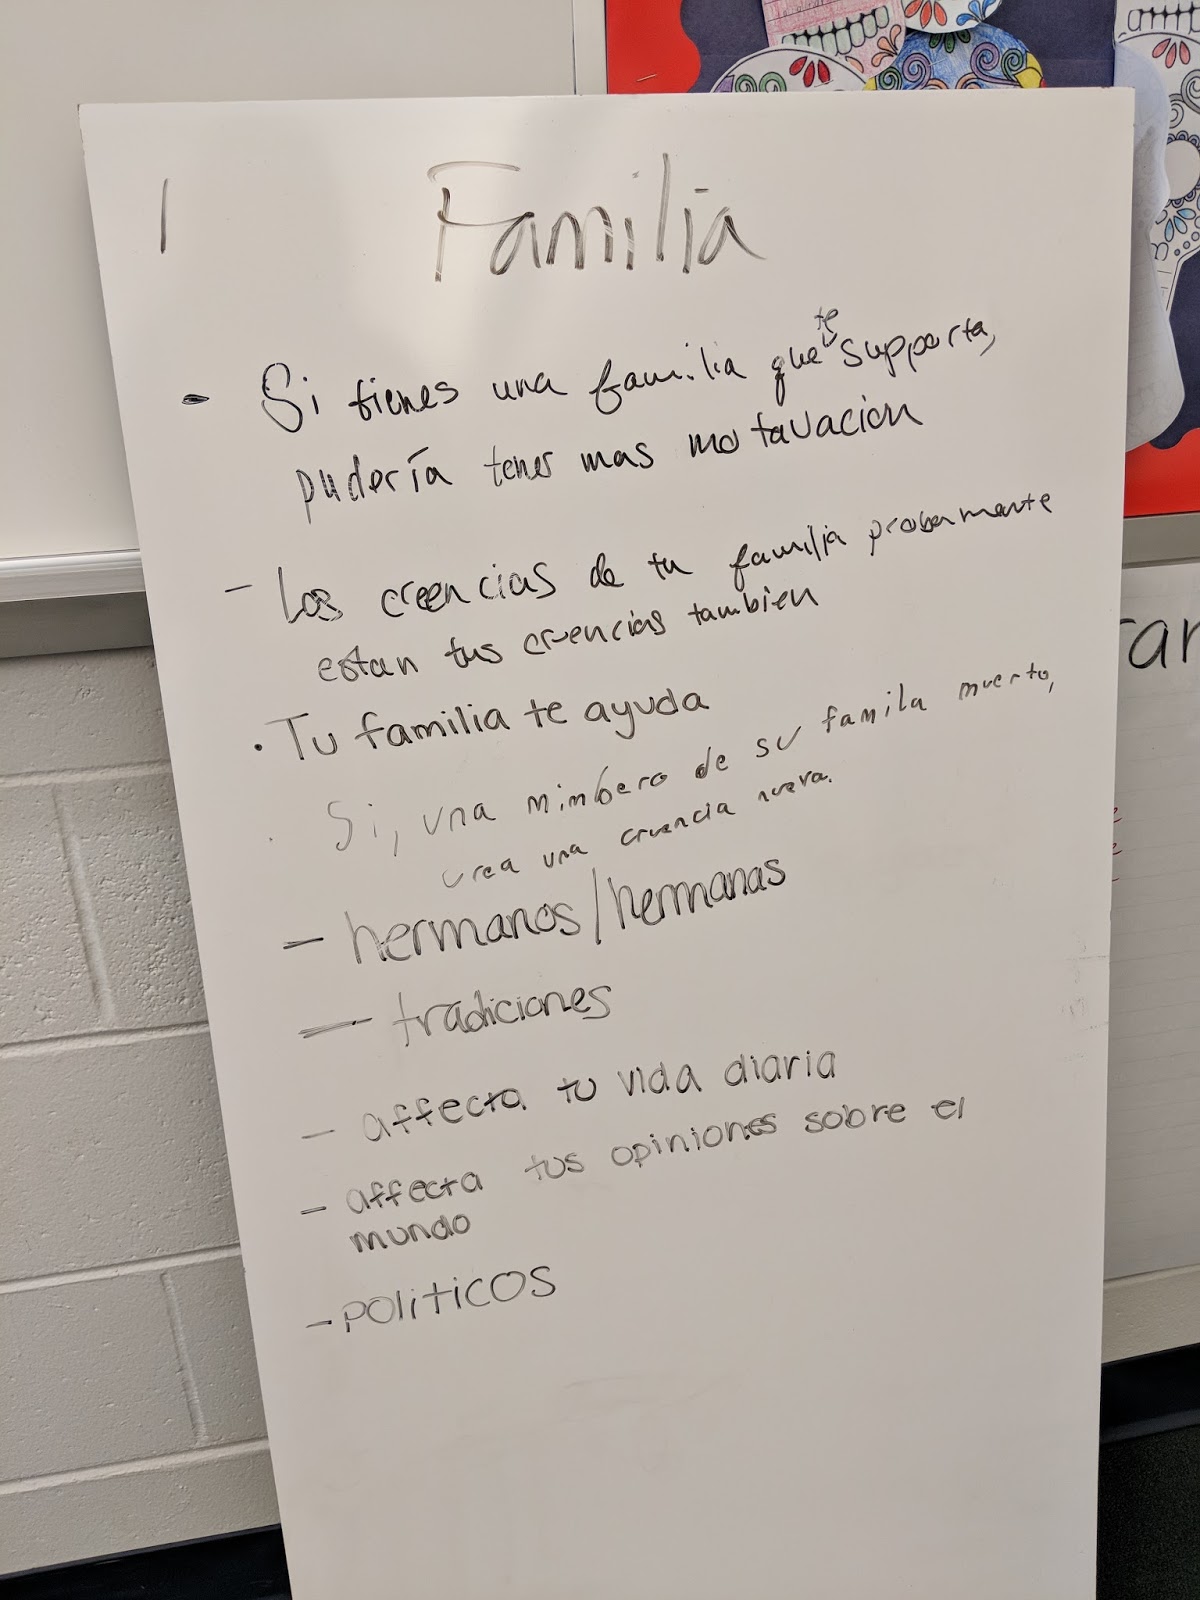 1 Familia
- Si tienes una familia que te supporta,
pudería tener mas motavacion
- Las creencias de tu familia probemente
estan tus cruencias tambien
• Tu familia te ayuda
• Si, una mimbero de su famila muerto,
crea una cruencia nueva.
- hermanos/hermanas
- tradiciones
- affecta tu vida diaria
- affecta tus opiniones sobre el
mundo
- politicos